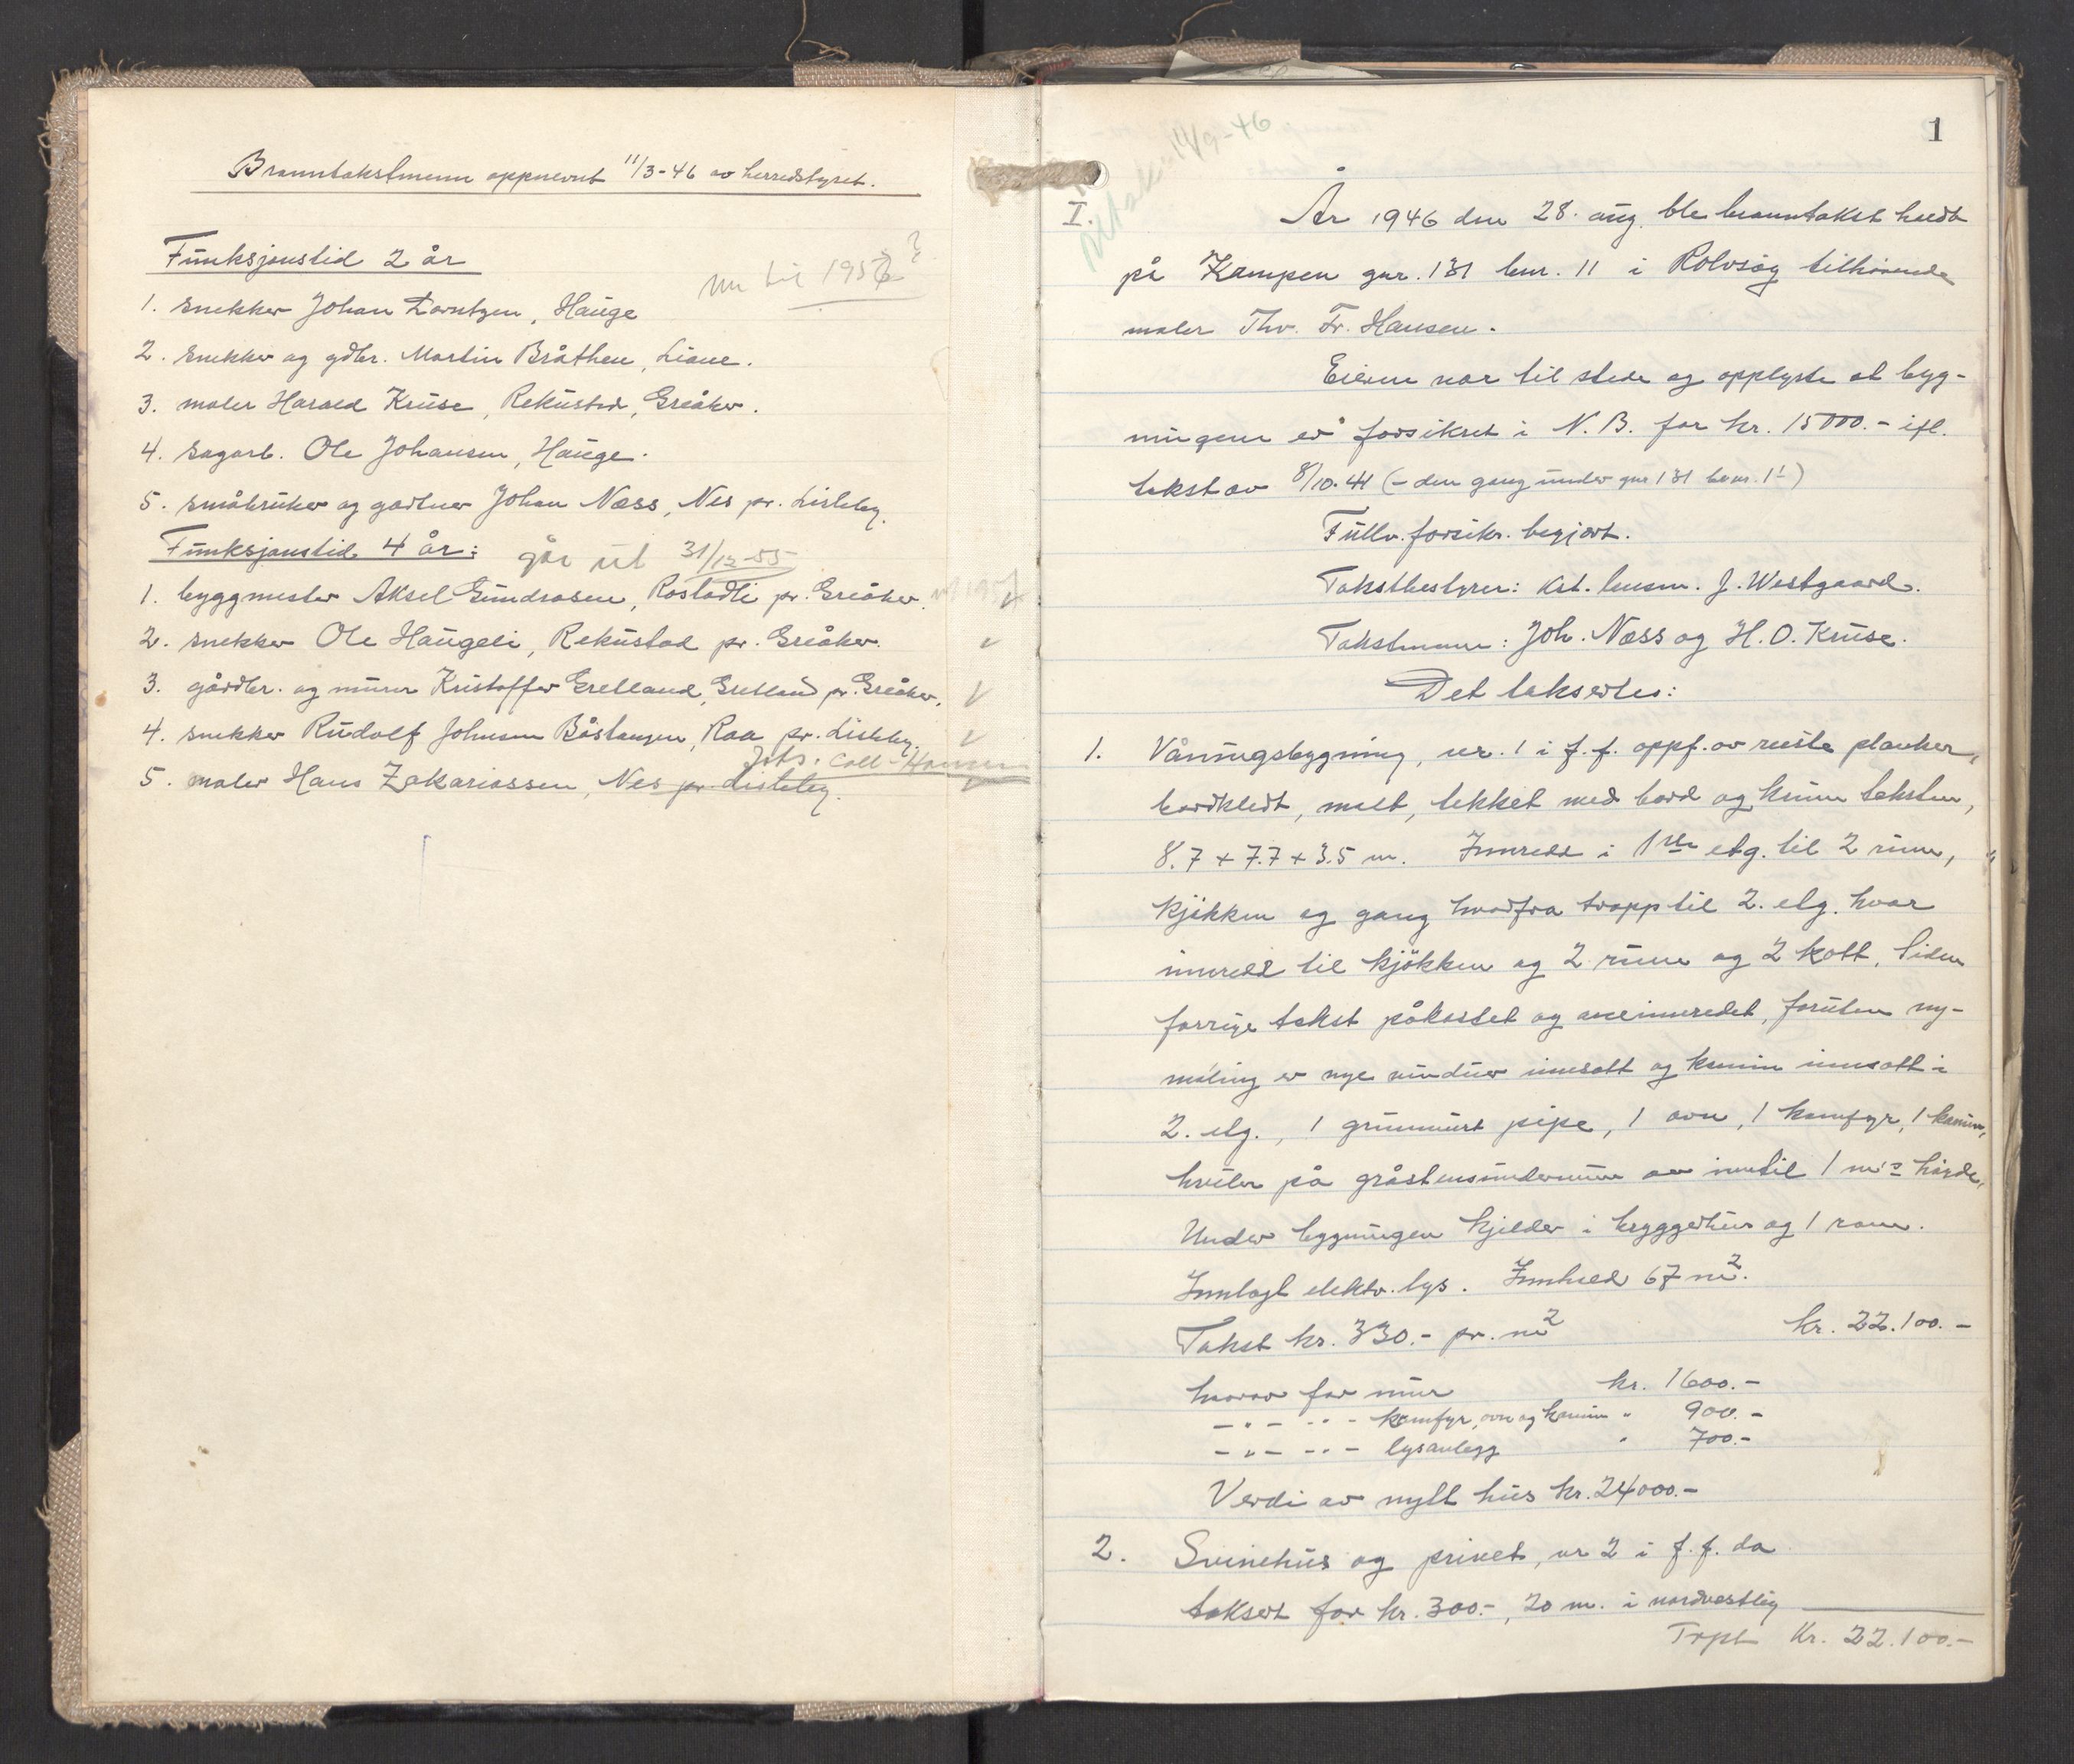 Branntakstmenn oppnevnt 11/3-46 av herredstyret.
Funksjonstid 2 år
nu til 1956 ?
1. snekker Johan Lorntzen, Hauge
2. snekker og gdbr. Martin Bråthen, Liane.
3. maler Harald Kruse, Rekustad, Greåker.
4. sagarb. Ole Johansen, Hauge.
5. småbruker og gartner Johan Næss, Nes pr. Lisleby.
Funksjonstid 4 år: går ut 31/12-55
1. byggmester Aksel Gundrosen, Rostadli pr. Greåker.
2. snekker Ole Haugeli, Rekustad pr. Greåker.
3. gårdbr. og murer Kristoffer Grelland, Grelland pr. Greåker.
4. snekker Rudolf Johnsen Båstangen, Raa pr. Lisleby.
Joh. Coll-Hansen
5. maler Hans Zakariassen, Nes pr. Lisleby.
1
14/9-46
I. År 1946 den 28. aug. ble branntakst holdt
på Kampen gnr. 131 bnr. 11 i Rolvsøy tilhørende
maler Thv. Fr. Hansen.
Eieren var til stede og opplyste at byg-
ningene er forsikret i N.B. for kr. 15000.- ifl.
takst av 8/10-41 (- den gang under gnr 131 brnr. 1)
Fullv. forsikr. begjært.
Takstbestyrer: Kst. lensm. J. Westgaard.
Takstmenn: Joh. Næss og H. O. Kruse.
Det takseres:
1. Våningsbygning, nr. 1 i f.f. oppf. av reiste planker,
bordkledt, malt, tekket med bord og krum taksten,
8.7 + 7.7 + 3.5 m. Innredd i 1ste etg. til 2 rum,
kjøkken og gang hvorfra trapp til 2. etg. hvor
innredd til kjøkken og 2 rum og 2 kott. Siden
forrige takst påkostet og innredet, foruten ny-
maling er nye vinduer innsatt og kamin innsatt i
2. etg., 1 grunnmurt pipe, 1 ovn, 1 komfyr, 1 kamin,
hviler på gråstensundermur av inntil 1 m's høyde.
Under bygningen kjelder i bryggerhus og 1 rom.
Innlagt elektr. lys. Innhold 67 m2.
Takst kr. 330.- pr. m2 kr. 22.100.-
hvorav for mur kr. 1600.-
- " - - " - komfyr, ovn og kamin " 900.-
- " - - " - lysanlegg " 700.-
Verdi av nytt hus kr. 24000.-
2. Svinehus og privet, nr 2 i f.f. da
taksert for kr. 300.-, 20 m. i nordvestlig
Trpt Kr. 22.100.-